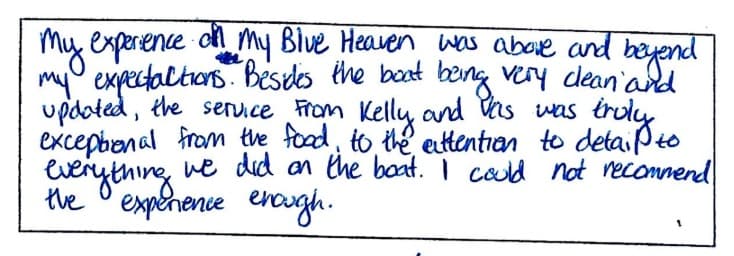 My experience on My Blue Heaven was above and beyond
my expectactions. Besides the boat being very clean and
updated, the service from Kelly and Vas was truly
exceptional from the food, to the attention to detail, to
everything we did on the boat. I could not recommend
the experience enough.